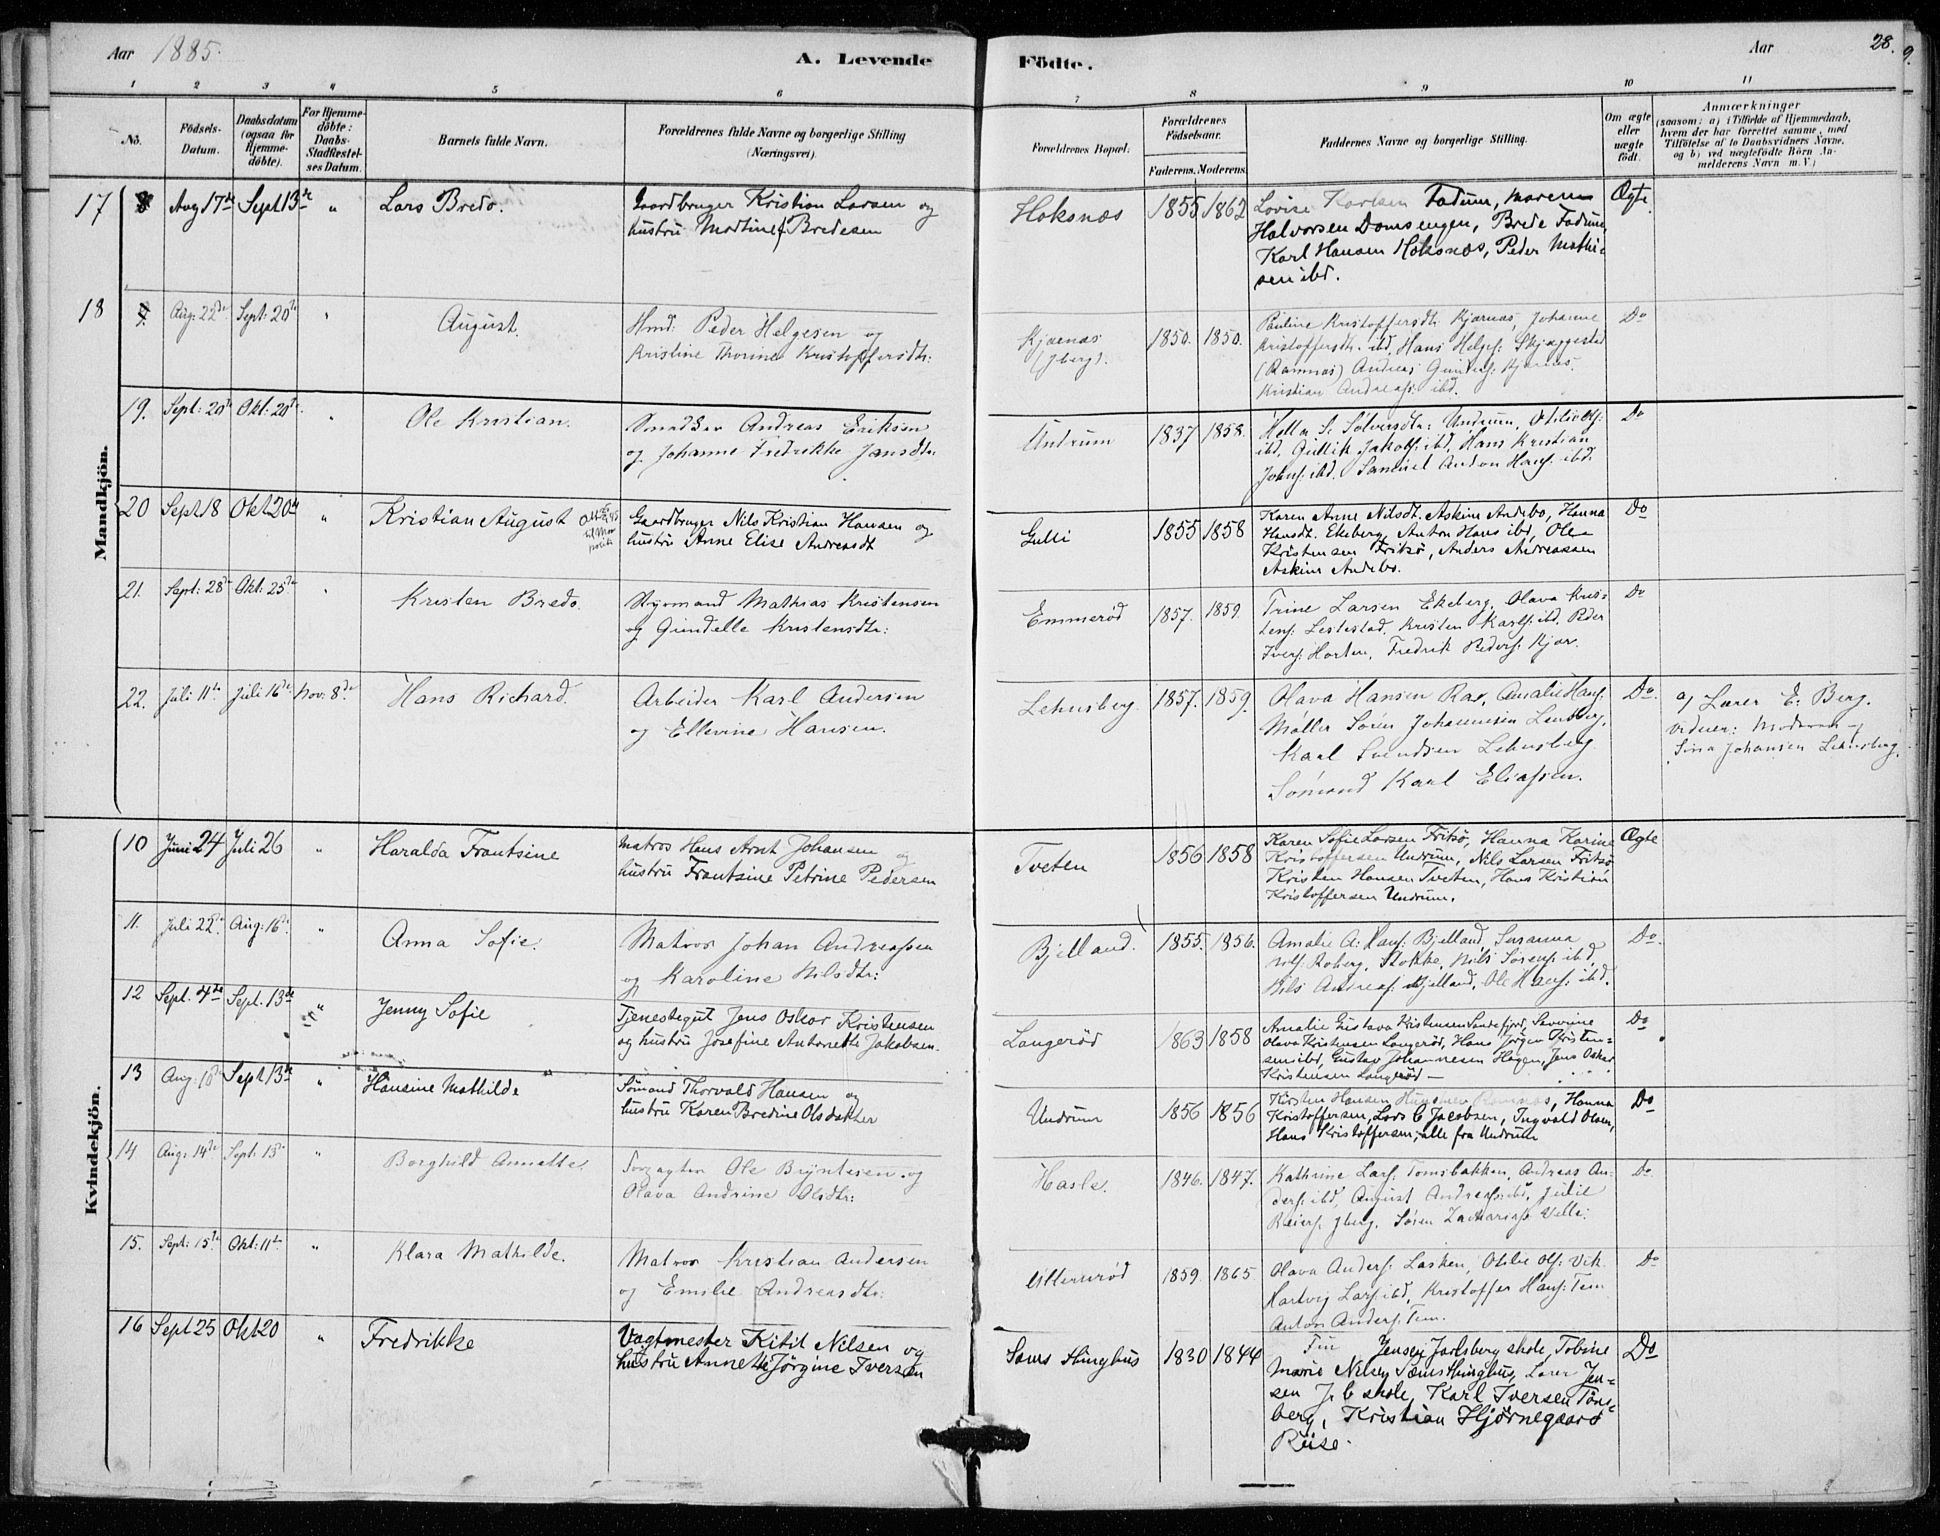 Aar 1885.
A. Levende Födte.
Aar
28.
1 2 3 4 5 6 7 8 9 10 11
No.
Födsels-Datum.
Daabsdatum (ogsaa for Hjemme-döbte).
For Hjemme-döbte: Daabs-Stadfæstel-ses Datum.
Barnets fulde Navn.
Forældrenes fulde Navne og borgerlige Stilling (Næringsvei).
Forældrenes Bopæl.
Forældrenes Födselsaar.
Faderens. Moderens.
Faddernes Navne og borgerlige Stilling.
Om ægte eller uægte födt.
Anmærkninger
(saasom: a) i Tilfælde af Hjemmedaab,
hvem der har forrettet samme, med
Tilföielse af to Daabsvidners Navne,
og b) ved uægtefödte Börn An-
melderens Navn m. V.)
Mandkjön.
17 8 Aug 17de Sept 13de " Lars Bredo.
Gaardbruger Kristian Larsen og
hustru Martine Bredesen
Hoksnæs 1855 1862
Lovise Karlsen Fadum, Maren
Halvorsen Damsengen, Brede Fadum,
Karl Hansen Hoksnæs, Peder Mathi-
sen ibd.
Ægte
18 9. Aug: 22de Sept: 20de " August.
Hmd: Peder Helgesen og
Kristine Thorine Kristoffersdtr:
Kjærnæs
(Jberg).
1850. 1850.
Pauline Kristoffersdtr. Kjærnæs, Johanne
Kristoffersdtr. ibd, Hans Helges: Skjæggestad
(Ramnæs) Andreas Gunders: Kjærnæs.
Kristian Andreass: ibd.
Do
19. Sept: 20de Okt: 20de " Ole Kristian.
Andreas Eriksen
og Johanne Fredrikke Jansdtr:
Undrum 1837 1858.
Sølversdtr: Undrum,
ibd, Gullik Jakobs: ibd, Hans Kristian
Johns: ibd. Samuel Anton Hans: ibd.
Do
20 Sept 18 Okt 20de " Kristian August
Gaardbruger Nils Kristian Hansen og
hustru Anne Elise Andreasdt
Gulli 1855 1858
Karen Anne Nilsdt. Askim Andebo, Hanna
Hansdt. Ekeberg, Anton Hans ibd, Ole
Kristensen Friksø, Anders Andreassen
Askim Andebo.
Do
21. Sept: 28de Okt: 25de " Kristen Bredo.
Styrmand Mathias Kristensen
og Gundelle Kristensdtr:
Emmerød 1857. 1859.
Trine Larsen Ekeberg, Olava Kris-
tens: Lestestad, Kristen Karls: ibd. Peder
Ivers: Horten, Fredrik Peders: Kjær.
Do
22. Juli 11te Juli 16de Nov: 8de Hans Richard.
Arbeider Karl Andersen
og Ellevine Hansen.
Lehnsberg 1857. 1859.
Olava Hansen Ras, Amalie Hans:
Møller Søren Johannesen
Karl Svendsen Lehnsberg
Sømand Karl Eliassen.
Do.
a/ Lærer E. Berg.
Vidner: Moderen og
Sina Johansen Lehnsberg.
Kvindekjön.
10 Juni 24 Juli 26 " Haralda Frantsine
Matros Hans Arnt Johansen og
hustru Frantsine Petrine Pedersen
Tveten 1856 1858
Karen Sofie Larsen Friksø, Hanna Karine
Kristoffersen Undrum, Nils Larsen Friksø
Kristen Hansen Tveten, Hans Kristian
Kristoffersen Undrum.
Ægte
11. Juli 22de Aug: 16de " Anna Sofie.
Matros Johan Andreassen
og Karoline Nilsdtr:
Bjelland. 1855. 1856.
Amalie A: Hans: Bjelland, Susanna
Nils: Stokke, Nils Sørens: ibd,
Nils Andreas: Bjelland, Ole Hans: ibd.
Do.
12 Sept. 4de Sept. 13de " Jenny Sofie
Tjenestegut Jens Oskar Kristensen
og hustru Josefine Antonette Jakobsen.
Langerød 1863 1858
Amalie Gustava Kristensen Sandefjord, Severine
Olava Kristensen Langerød, Hans Jørgen Kristen-
sen ibd, Gustav Johannesen Haugen, Jens Oskar
Kristensen Langerød —
Do
13 Aug. 18de Sept 13de " Hansine Mathilde
Sömand Thorvald Hansen og
hustru Karen Bredine Olsdatter
Undrum 1856 1856
Kirsten Hansen Ramnæs, Hanna
Kristoffersen, Lars C Jacobsen, Ingvald Olsen,
Hans Kristoffersen, alle fra Undrum
Do
14 Aug: 14de Sept: 13de " Borghild Annette.
Ole Bryntesen og
Olava Andrine Olsdtr:
Hasle. 1846. 1847.
Kathrine Lars: Tomsbakken, Andreas An-
ders: ibd, August Andreass: ibd, Julie
Reiers: Jberg. Søren Zacharias: Velle:
Do.
15. Sept: 15de Okt: 11te " Klara Mathilde.
Matros Kristian Andersen
og Emilie Andreasdtr:
1859. 1865
Olava Anders: Lasken, Otilie Ols: Vik.
Hartvig Lars: ibd, Kristoffer Hans: Tem
Anton Anders: Tem.
Do
16 Sept 25 Okt 20 " Fredrikke
Vagtmester Kitil Nilsen og
hustru Annette Jørgine Iversen
Sæms thinghus 1830 1844
Jensen Jarlsberg skole, Tobine
Marie Nilsen Sæms thinghus, Lærer Jen-
sen J. b skole, Karl Iversen Töns-
berg, Kristian Hjørnegaard
Reise.
Do